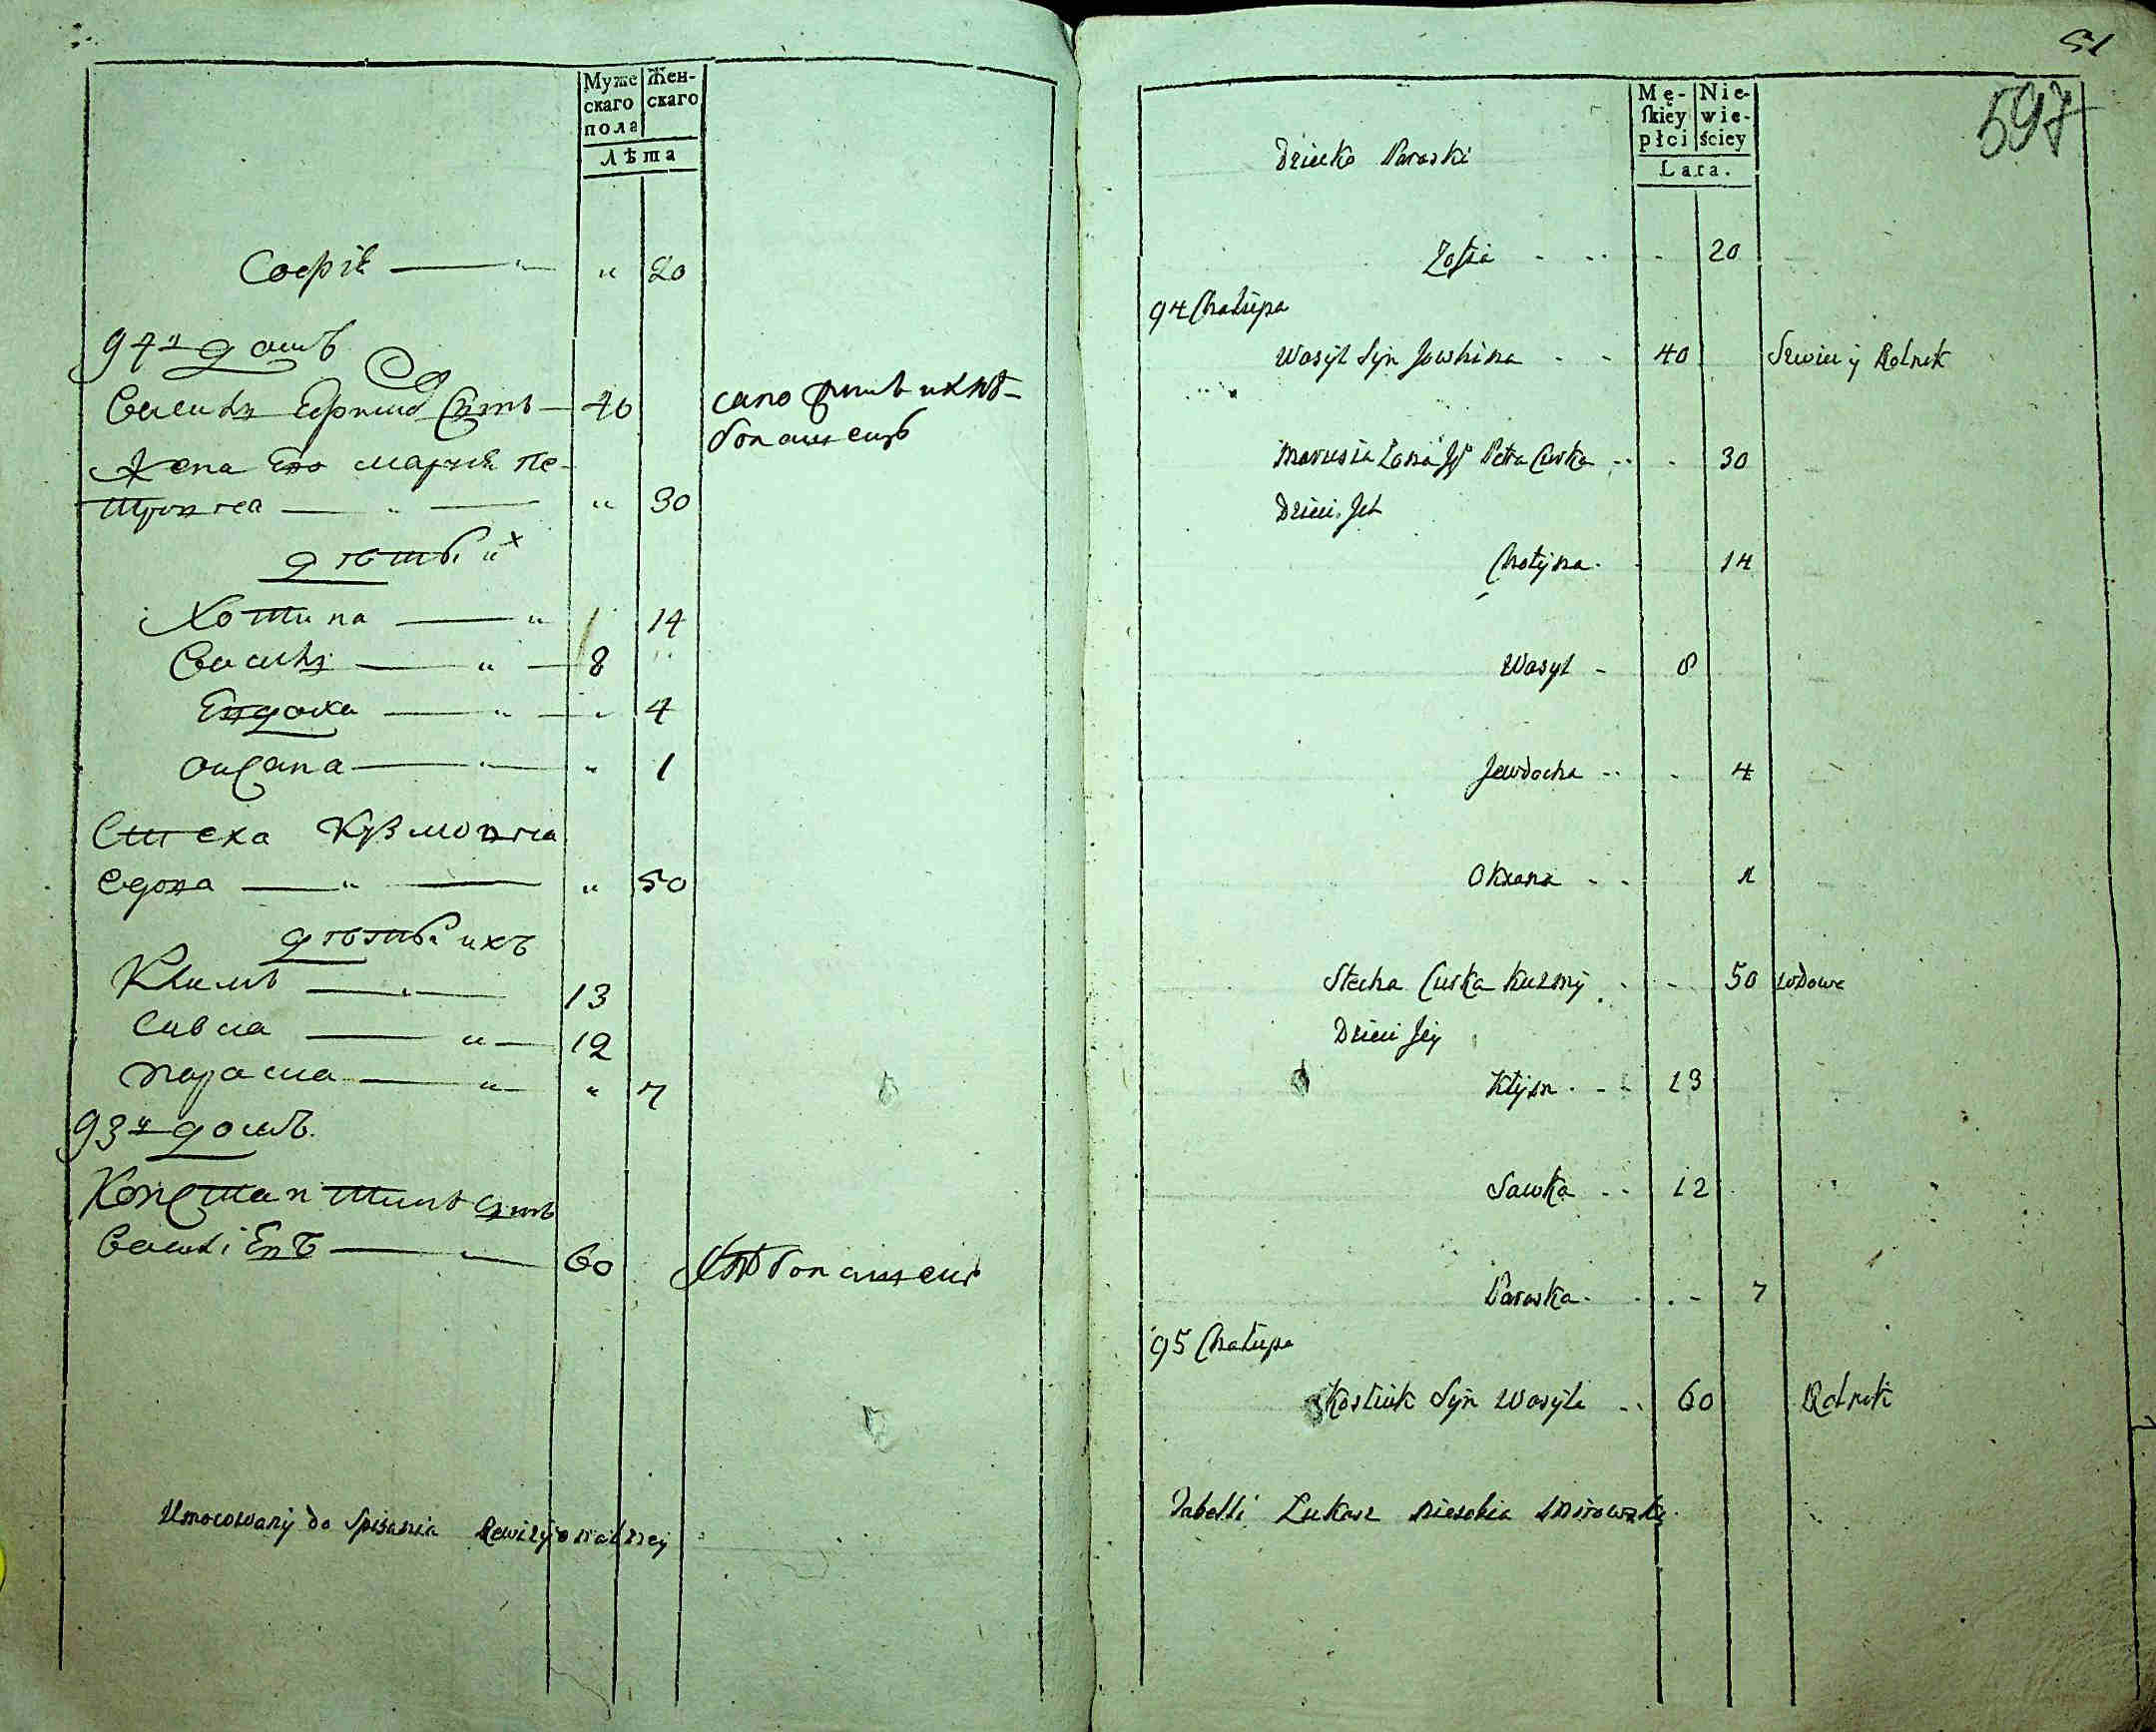 Муже
скаго
пола
Жен-
скаго
Лѣта
Софіѣ — " 20
94й домъ
Василь Сынъ — 40
Жена Его Мариѣ Пе-
трова — " 30
дѣти их
Хотина — 14
Василь — 8
Евдоха — 4
Оксана — 1
Стеха
Вдова — " 50
дѣти ихъ
Климъ — 13
Савка — 12
Параска — " 7
93й домъ
Константинъ Сынъ
Василіевъ — 60
хлѣбопашецъ
Umocowany do Spisania Rewizyonalney
51
597
Mę-
skiey
płci
Nie-
wie-
ściey
Lata.
Dziecko Paraski
Zofia 20
94 Chałupa
Wasyl Syn 40 Szwiec y Rolnik
Marusia Żona Jgo Petra Curka 30
Dzieci Ich
Chotyna 14
Wasyl 8
Jewdocha 4
Oksana 1
Stecha Curka Kuzmy 50 wdowa
Dzieci Jey
Kłym 13
Sawka 12
Paraska 7
95 Chałupa
Kostiuk Syn Wasyla 60 Rolnik
Tabelli Łukasz